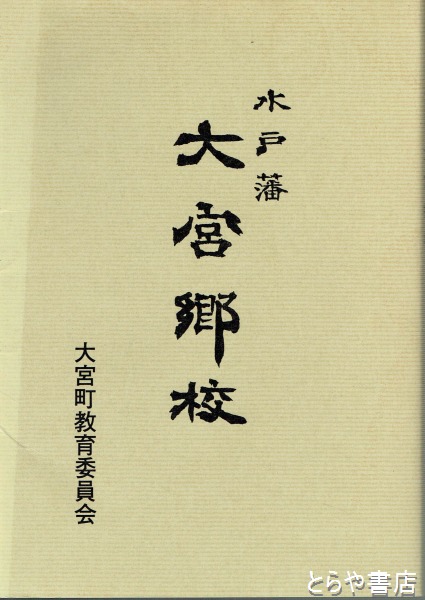 水戸藩
大宮郷校
大宮町教育委員会
とらや書店